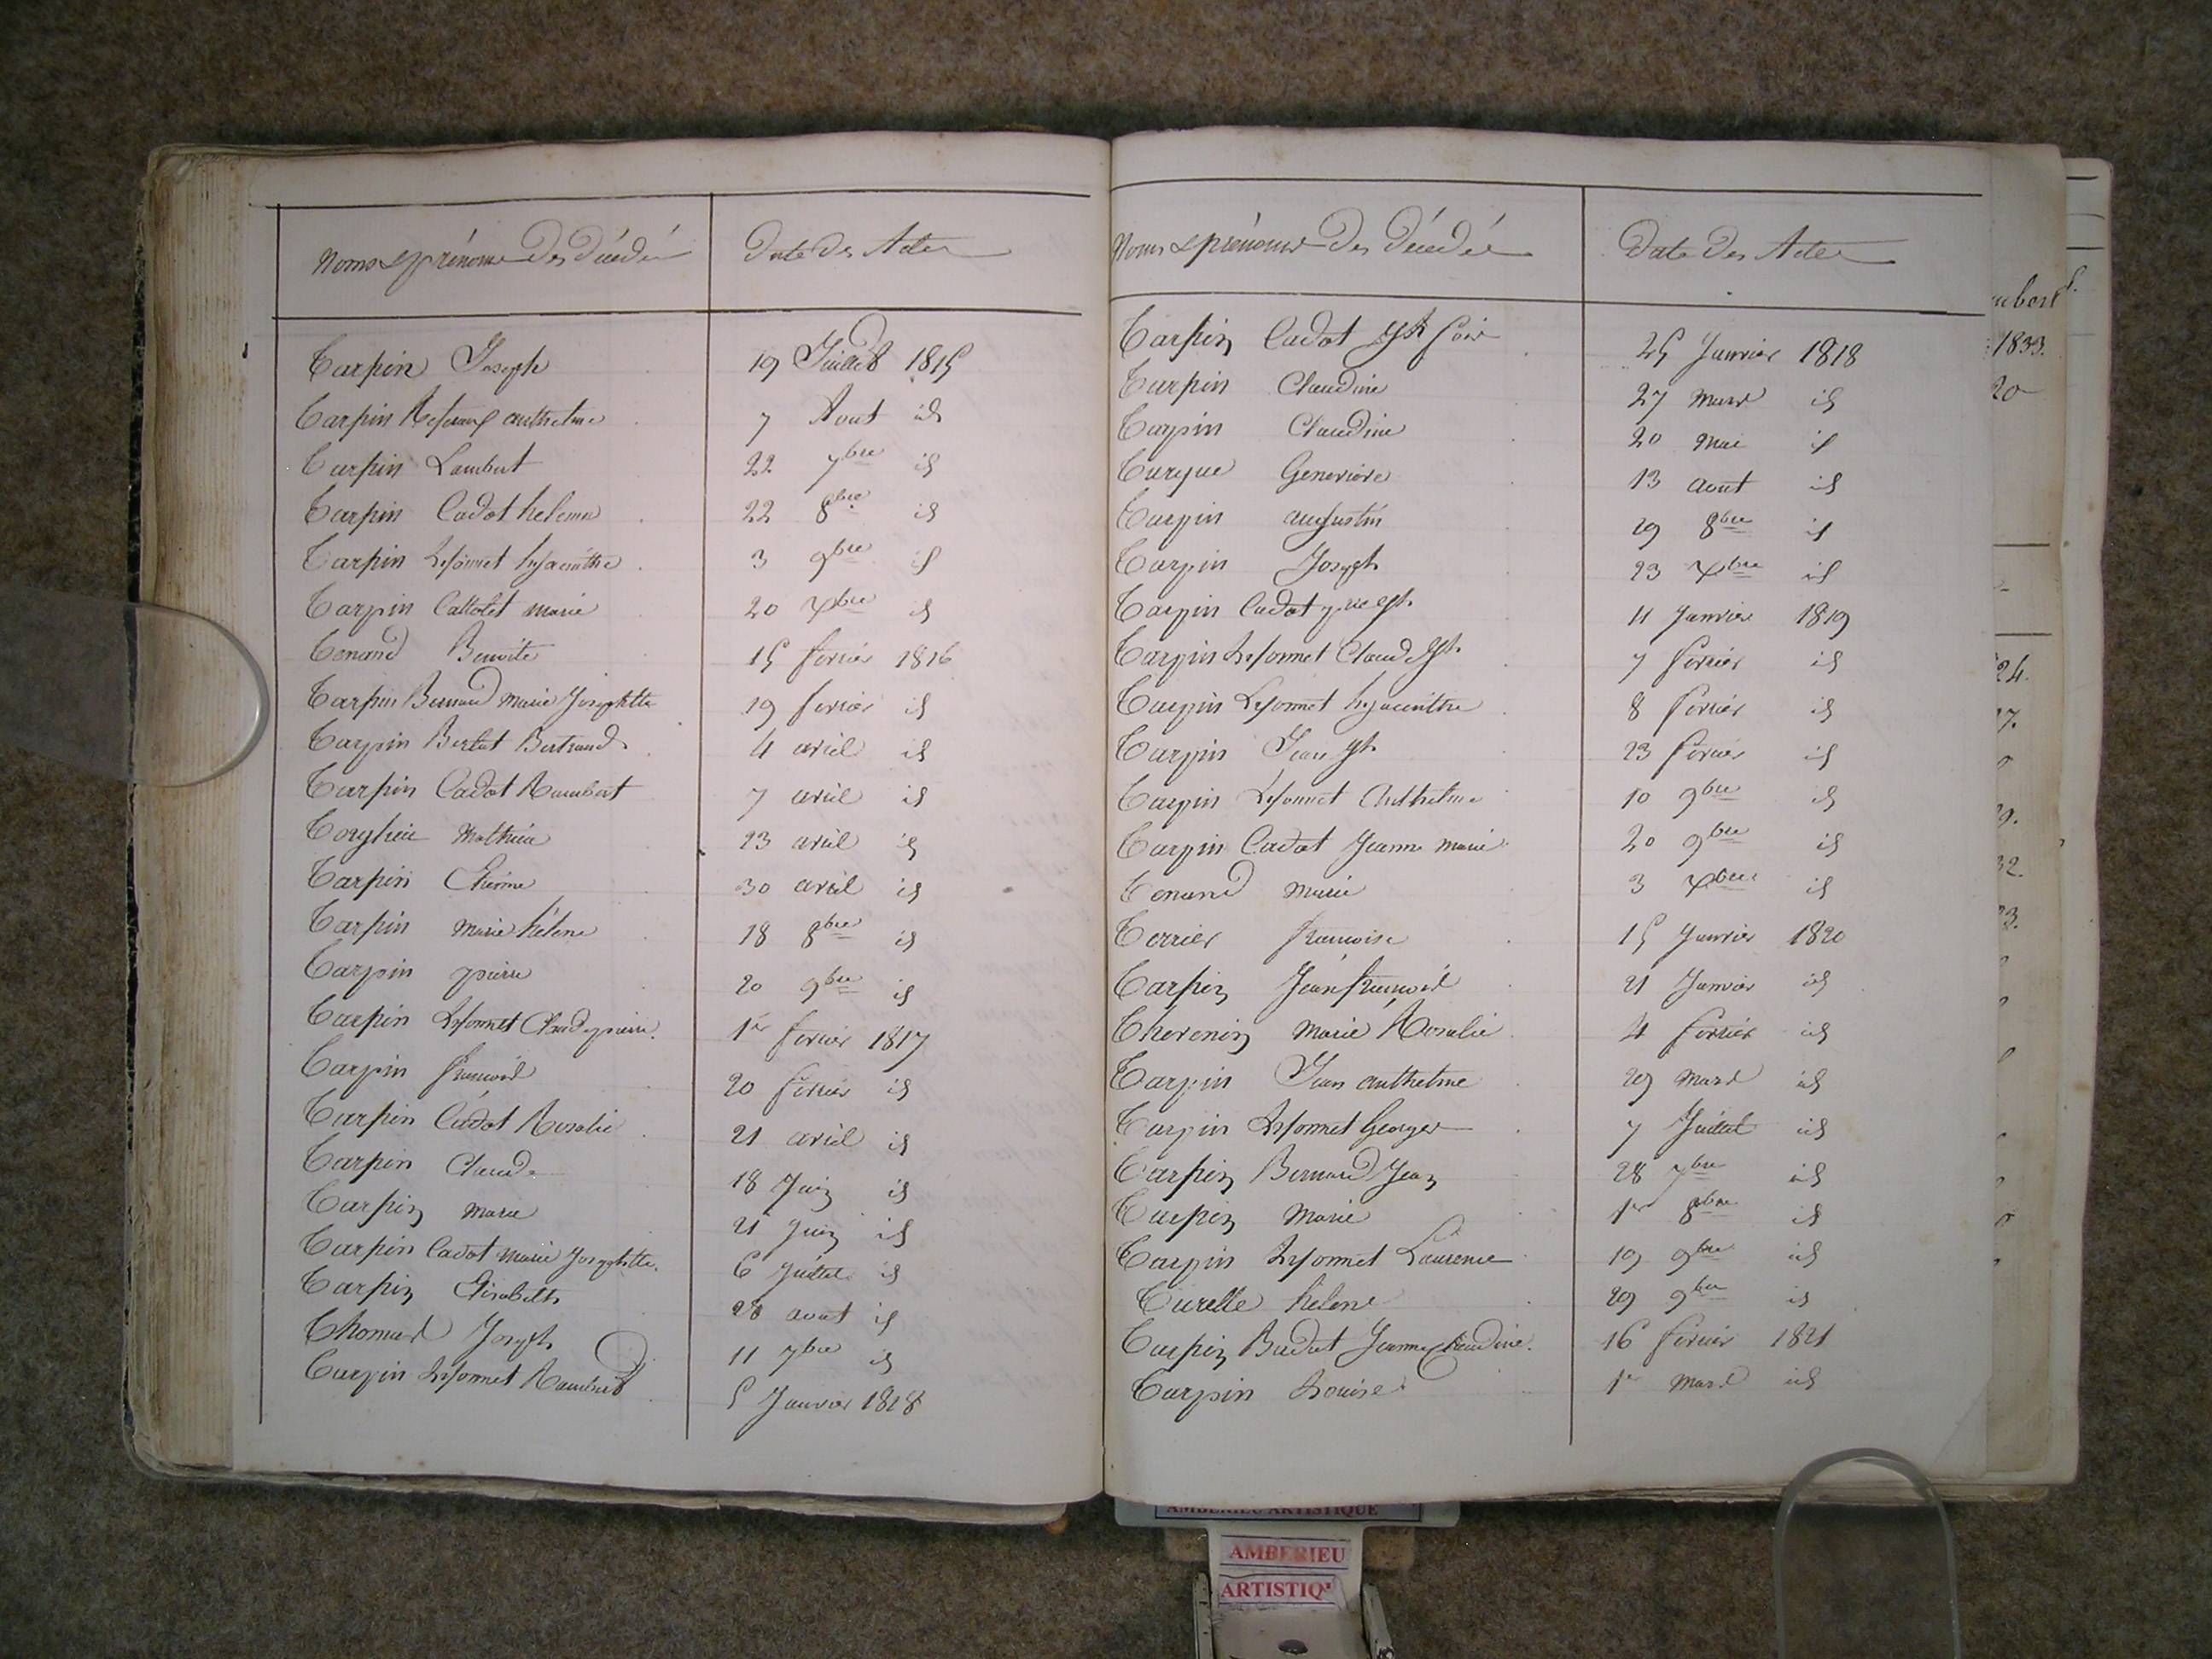 Noms & prénoms des décédés Date des Actes
Tarpin Joseph 19 Juillet 1815
Tarpin anthelme 7 Aout id
Tarpin Lambert 22 7bre id
Tarpin Cadot helenne 22 8bre id
Tarpin hyacinthe 3 9bre id
Tarpin Callolet marie 20 Xbre id
Tenand Benoite 15 fevrier 1816
Tarpin Bernard Marie Josephtte 19 fevrier id
Tarpin Bertet Bertrand 4 avril id
Tarpin Cadot Rambert 7 avril id
mathieu 23 avril id
Tarpin Etienne 30 avril id
Tarpin Marie hélene 18 8bre id
Tarpin pierre 20 9bre id
Tarpin Claude pierre 1er fevrier 1817
Tarpin francois 20 fevrier id
Tarpin Cadot Rosalie 21 avril id
Tarpin Claude 18 Juin id
Tarpin marie 21 Juin id
Tarpin Cadot marie Josephtte 6 Juillet id
Tarpin Elisabeth 28 aout id
Thomas Joseph 11 7bre id
Tarpin Rambert 5 Janvier 1818
Noms & prénoms des décédés Date des Actes
Tarpin Cadot 25 Janvier 1818
Tarpin Claudine 27 Mars id
Tarpin Claudine 20 Mai id
Genevieve 13 aout id
Tarpin augustin 29 8bre id
Tarpin Joseph 23 Xbre id
Tarpin Cadot 11 Janvier 1819
Tarpin Claude Jh 7 fevrier id
Tarpin hyacinthe 8 fevrier id
Tarpin Jean Jh 23 fevrier id
Tarpin Anthelme 10 9bre id
Tarpin Cadot Jeanne marie 20 9bre id
Tenand marie 3 Xbre id
Terrier francoise 15 Janvier 1820
Tarpin Jean francois 21 Janvier id
Thevenin Marie Rosalie 4 fevrier id
Tarpin Jean anthelme 29 Mars id
Tarpin George 7 Juillet id
Tarpin Bernard Jean 28 7bre id
Tarpin Marie 1er 8bre id
Tarpin Laurence 19 9bre id
Turelle helene 29 9bre id
Tarpin Jeanne Claudine 16 fevrier 1821
Tarpin Louise 1er Mars id
1833.
20
24.
17.
32.
23.
AMBERIEU ARTISTIQUE
AMBERIEU